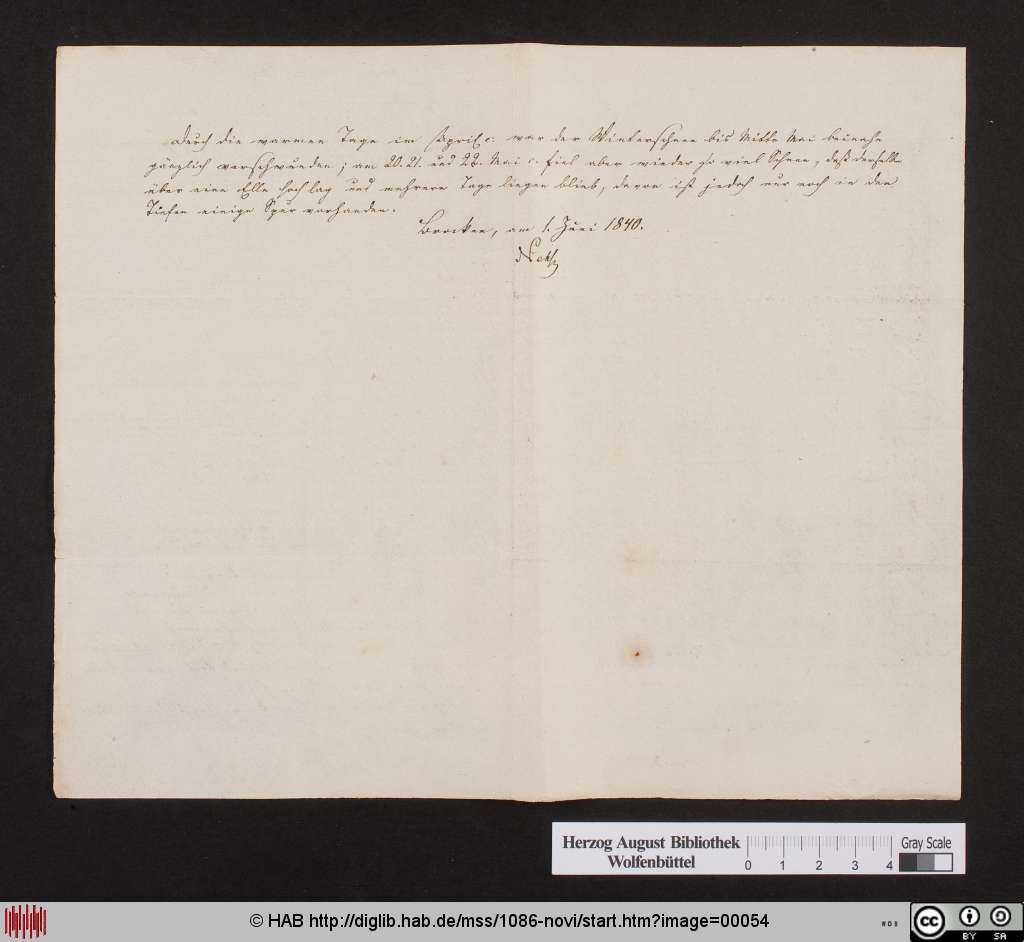 Durch die warmen Tage im April c. war der Winterschnee bis Mitte Mai beinahe
gänzlich verschwunden; am 20. 21. und 22. Mai c. fiel aber wieder so viel Schnee, daß derselbe
über eine Elle hoch lag und mehrere Tage liegen blieb, davon ist jedoch nur noch in den
Tiefen einige Spur vorhanden.
Brocken, am 1. Juni 1840.
Herzog August Bibliothek
Wolfenbüttel
0 1 2 3 4
Gray Scale
© HAB http://diglib.hab.de/mss/1086-novi/start.htm?image=00054
WDB
cc BY SA